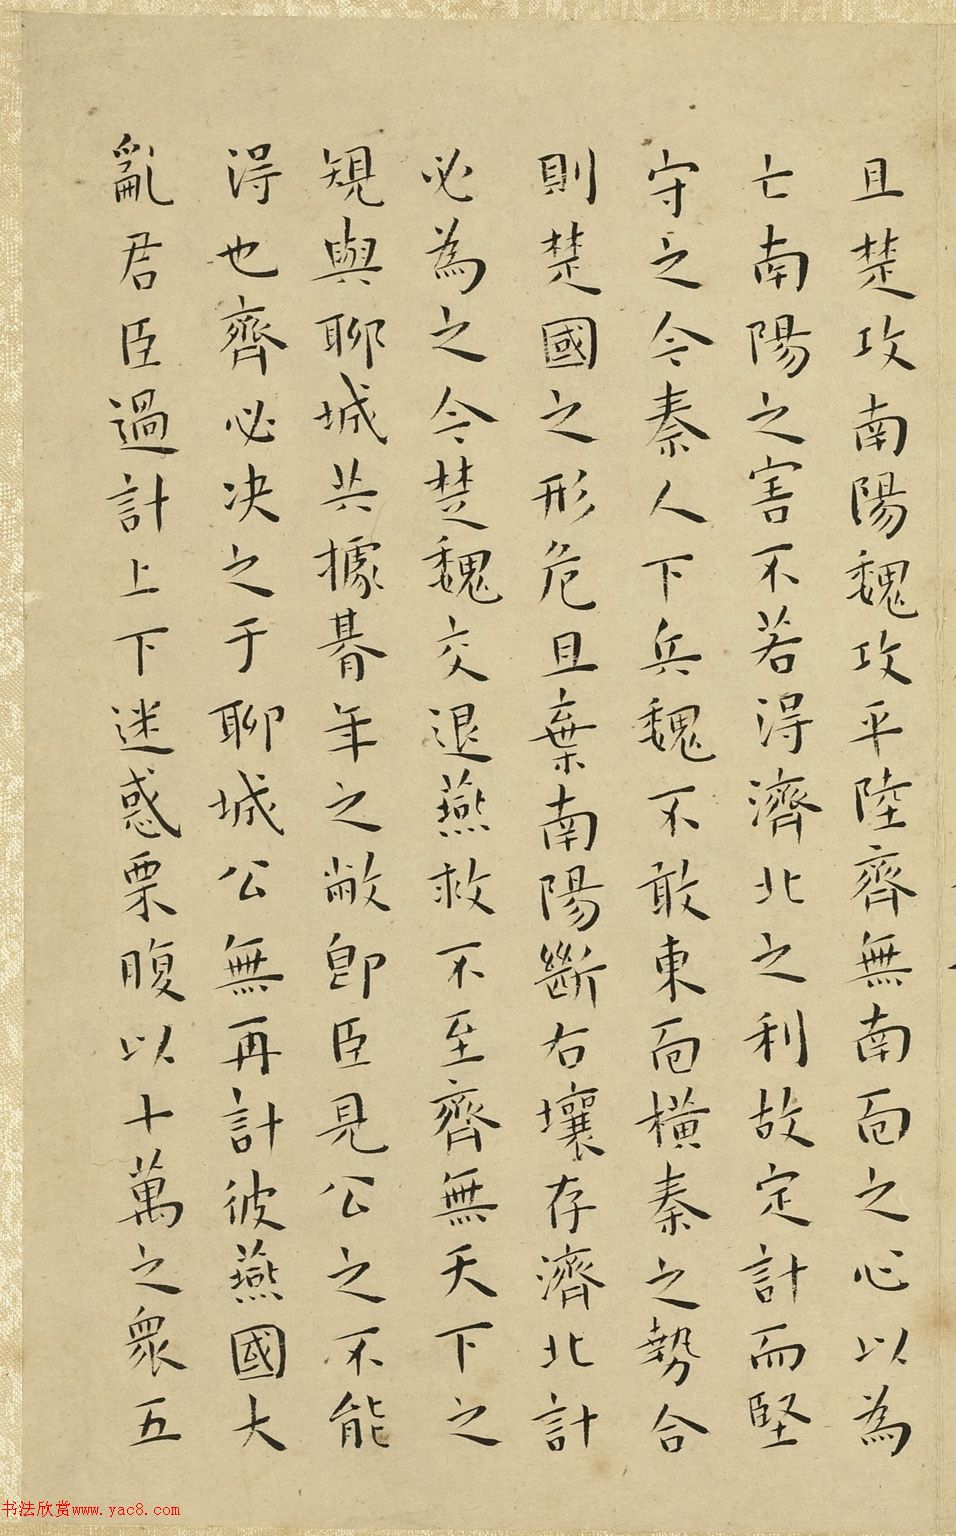 且楚攻南陽魏攻平陸齊無南面之心以為
亡南陽之害不若得濟北之利故定計而堅
守之今秦人下兵魏不敢東面橫秦之勢合
則楚國之形危且棄南陽斷右壤存濟北計
必為之今楚魏交退燕救不至齊無天下之
規與聊城共據朞年之敝即臣見公之不能
得也齊必决之于聊城公無再計彼燕國大
亂君臣過計上下迷惑栗腹以十萬之眾五
书法欣赏www.yac8.com